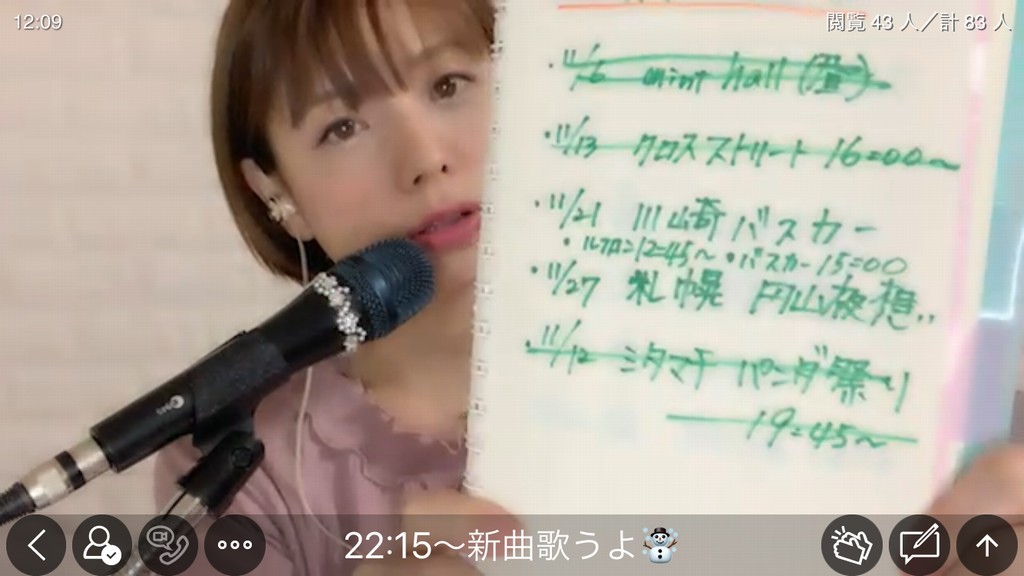 12:09
閲覧 43 人／計 83 人
・11/6 mint hall (昼)
・11/13 クロスストリート 16:00〜
・11/21 川崎 バスカー
・ルフロン12:45〜 ・バスカー 15:00
・11/27 札幌 円山夜想..
・11/12 シタマチ パンダ祭り
19:45〜
22:15〜新曲歌うよ☃️